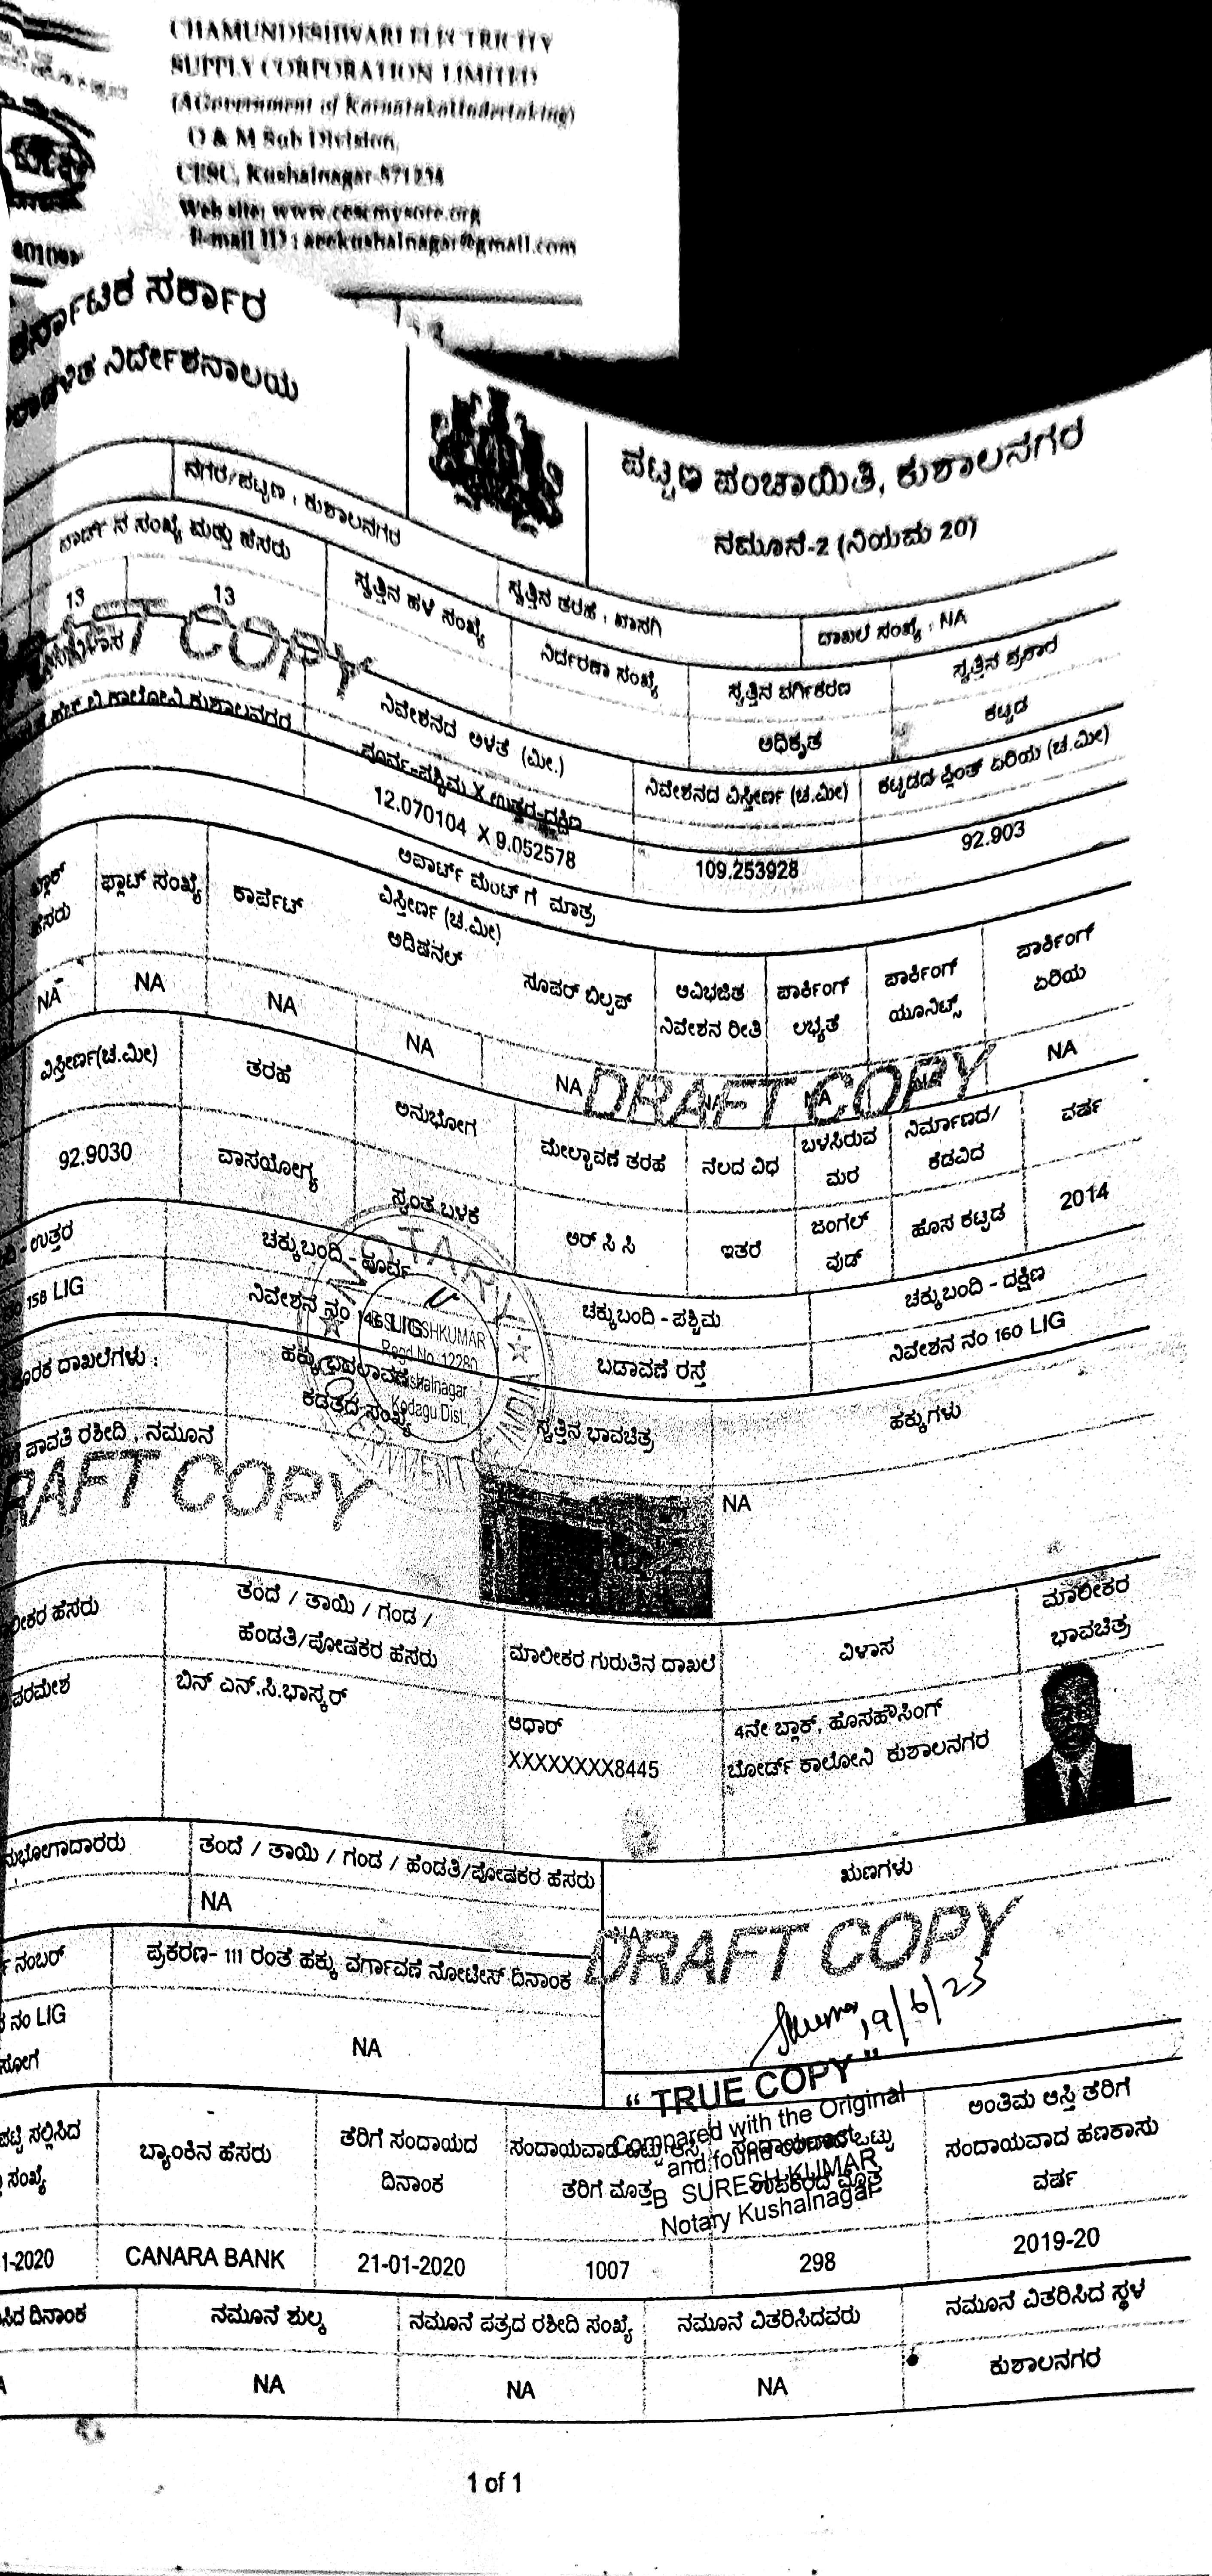 CHAMUNDESHWARI ELECTRICITY
SUPPLY CORPORATION LIMITED
(A Government of Karnataka Undertaking)
O & M Sub Division,
CESC, Kushalnagar-571234
Web site: www.cescmysore.org
E-mail ID : aeekushalnagar@gmail.com
ಕರ್ನಾಟಕ ಸರ್ಕಾರ
ನಿರ್ದೇಶನಾಲಯ
ಪಟ್ಟಣ ಪಂಚಾಯಿತಿ, ಕುಶಾಲನಗರ
ನಮೂನೆ-2 (ನಿಯಮ 20)
ನಗರ/ಪಟ್ಟಣ : ಕುಶಾಲನಗರ
ಸ್ವತ್ತಿನ ತರಹ : ಖಾಸಗಿ
ದಾಖಲೆ ಸಂಖ್ಯೆ : NA
ವಾರ್ಡ್ ನ ಸಂಖ್ಯೆ ಮತ್ತು ಹೆಸರು
ಸ್ವತ್ತಿನ ಹಳೆ ಸಂಖ್ಯೆ
ನಿರ್ದರಣಾ ಸಂಖ್ಯೆ
ಸ್ವತ್ತಿನ ವರ್ಗೀಕರಣ
ಸ್ವತ್ತಿನ ಪ್ರಕಾರ
13 13
ಅಧಿಕೃತ
ಕಟ್ಟಡ
COPY
ನಿವೇಶನದ ಅಳತೆ (ಮೀ.)
ನಿವೇಶನದ ವಿಸ್ತೀರ್ಣ (ಚ.ಮೀ)
ಕಟ್ಟಡದ ಪ್ಲಿಂತ್ ಏರಿಯ (ಚ.ಮೀ)
ಕಾಲೋನಿ ಕುಶಾಲನಗರ
ಪೂರ್ವ-ಪಶ್ಚಿಮ X ಉತ್ತರ-ದಕ್ಷಿಣ
12.070104 X 9.052578
109.253928
92.903
ಅಪಾರ್ಟ್ ಮೆಂಟ್ ಗೆ ಮಾತ್ರ
ಹೆಸರು
ಫ್ಲಾಟ್ ಸಂಖ್ಯೆ
ವಿಸ್ತೀರ್ಣ (ಚ.ಮೀ)
ಕಾರ್ಪೆಟ್
ಅಡಿಷನಲ್
ಸೂಪರ್ ಬಿಲ್ಟಪ್
ಅವಿಭಜಿತ ನಿವೇಶನ ರೀತಿ
ಪಾರ್ಕಿಂಗ್ ಲಭ್ಯತೆ
ಪಾರ್ಕಿಂಗ್ ಯೂನಿಟ್ಸ್
ಪಾರ್ಕಿಂಗ್ ಏರಿಯ
NA NA NA NA NA NA NA NA NA
DRAFT COPY
ವಿಸ್ತೀರ್ಣ(ಚ.ಮೀ)
ತರಹೆ
ಅನುಭೋಗ
ಮೇಲ್ಚಾವಣಿ ತರಹೆ
ನೆಲದ ವಿಧ
ಬಳಸಿರುವ ಮರ
ನಿರ್ಮಾಣದ/ ಕೆಡವಿದ
ವರ್ಷ
92.9030
ವಾಸಯೋಗ್ಯ
ಸ್ವಂತ ಬಳಕೆ
ಆರ್ ಸಿ ಸಿ
ಇತರೆ
ಜಂಗಲ್ ವುಡ್
ಹೊಸ ಕಟ್ಟಡ
2014
- ಉತ್ತರ
ಚಕ್ಕುಬಂದಿ - ಪೂರ್ವ
ಚಕ್ಕುಬಂದಿ - ಪಶ್ಚಿಮ
ಚಕ್ಕುಬಂದಿ - ದಕ್ಷಿಣ
158 LIG
ನಿವೇಶನ ನಂ 146 LIG
ಬಡಾವಣೆ ರಸ್ತೆ
ನಿವೇಶನ ನಂ 160 LIG
NOTARY
Regd.No. 12280
Kushalnagar
Kodagu Dist.
ದಾಖಲೆಗಳು :
ಹಕ್ಕು ಬದಲಾವಣೆ ಕಡತದ ಸಂಖ್ಯೆ
ಸ್ವತ್ತಿನ ಭಾವಚಿತ್ರ
ಹಕ್ಕುಗಳು
ಪಾವತಿ ರಶೀದಿ , ನಮೂನೆ
NA
RAFT COPY
ಹೆಸರು
ತಂದೆ / ತಾಯಿ / ಗಂಡ /
ಹೆಂಡತಿ/ಪೋಷಕರ ಹೆಸರು
ಮಾಲೀಕರ ಗುರುತಿನ ದಾಖಲೆ
ವಿಳಾಸ
ಮಾಲೀಕರ
ಭಾವಚಿತ್ರ
ಪರಮೇಶ
ಬಿನ್ ಎನ್.ಸಿ.ಭಾಸ್ಕರ್
ಆಧಾರ್
XXXXXXXX8445
4ನೇ ಬ್ಲಾಕ್, ಹೊಸಹೌಸಿಂಗ್
ಬೋರ್ಡ್ ಕಾಲೋನಿ ಕುಶಾಲನಗರ
ನುಭೋಗಾದಾರರು
ತಂದೆ / ತಾಯಿ / ಗಂಡ / ಹೆಂಡತಿ/ಪೋಷಕರ ಹೆಸರು
ಋಣಗಳು
NA
NA
DRAFT COPY
ನಂಬರ್
ಪ್ರಕರಣ- 111 ರಂತೆ ಹಕ್ಕು ವರ್ಗಾವಣೆ ನೋಟೀಸ್ ದಿನಾಂಕ
9/6/23
ನಂ LIG
NA
“ TRUE COPY ”
Compared with the Original
and found correct
B SURESH KUMAR
Notary Kushalnagar
ಸಲ್ಲಿಸಿದ
ಸಂಖ್ಯೆ
ಬ್ಯಾಂಕಿನ ಹೆಸರು
ತೆರಿಗೆ ಸಂದಾಯದ
ದಿನಾಂಕ
ಸಂದಾಯವಾದ ಒಟ್ಟು ಆಸ್ತಿ
ತೆರಿಗೆ ಮೊತ್ತ
ಸಂದಾಯವಾದ ಒಟ್ಟು
ಉಪಕರದ ಮೊತ್ತ
ಅಂತಿಮ ಆಸ್ತಿ ತೆರಿಗೆ
ಸಂದಾಯವಾದ ಹಣಕಾಸು
ವರ್ಷ
1-2020
CANARA BANK
21-01-2020
1007
298
2019-20
ದಿನಾಂಕ
ನಮೂನೆ ಶುಲ್ಕ
ನಮೂನೆ ಪತ್ರದ ರಶೀದಿ ಸಂಖ್ಯೆ
ನಮೂನೆ ವಿತರಿಸಿದವರು
ನಮೂನೆ ವಿತರಿಸಿದ ಸ್ಥಳ
NA
NA
NA
ಕುಶಾಲನಗರ
1 of 1